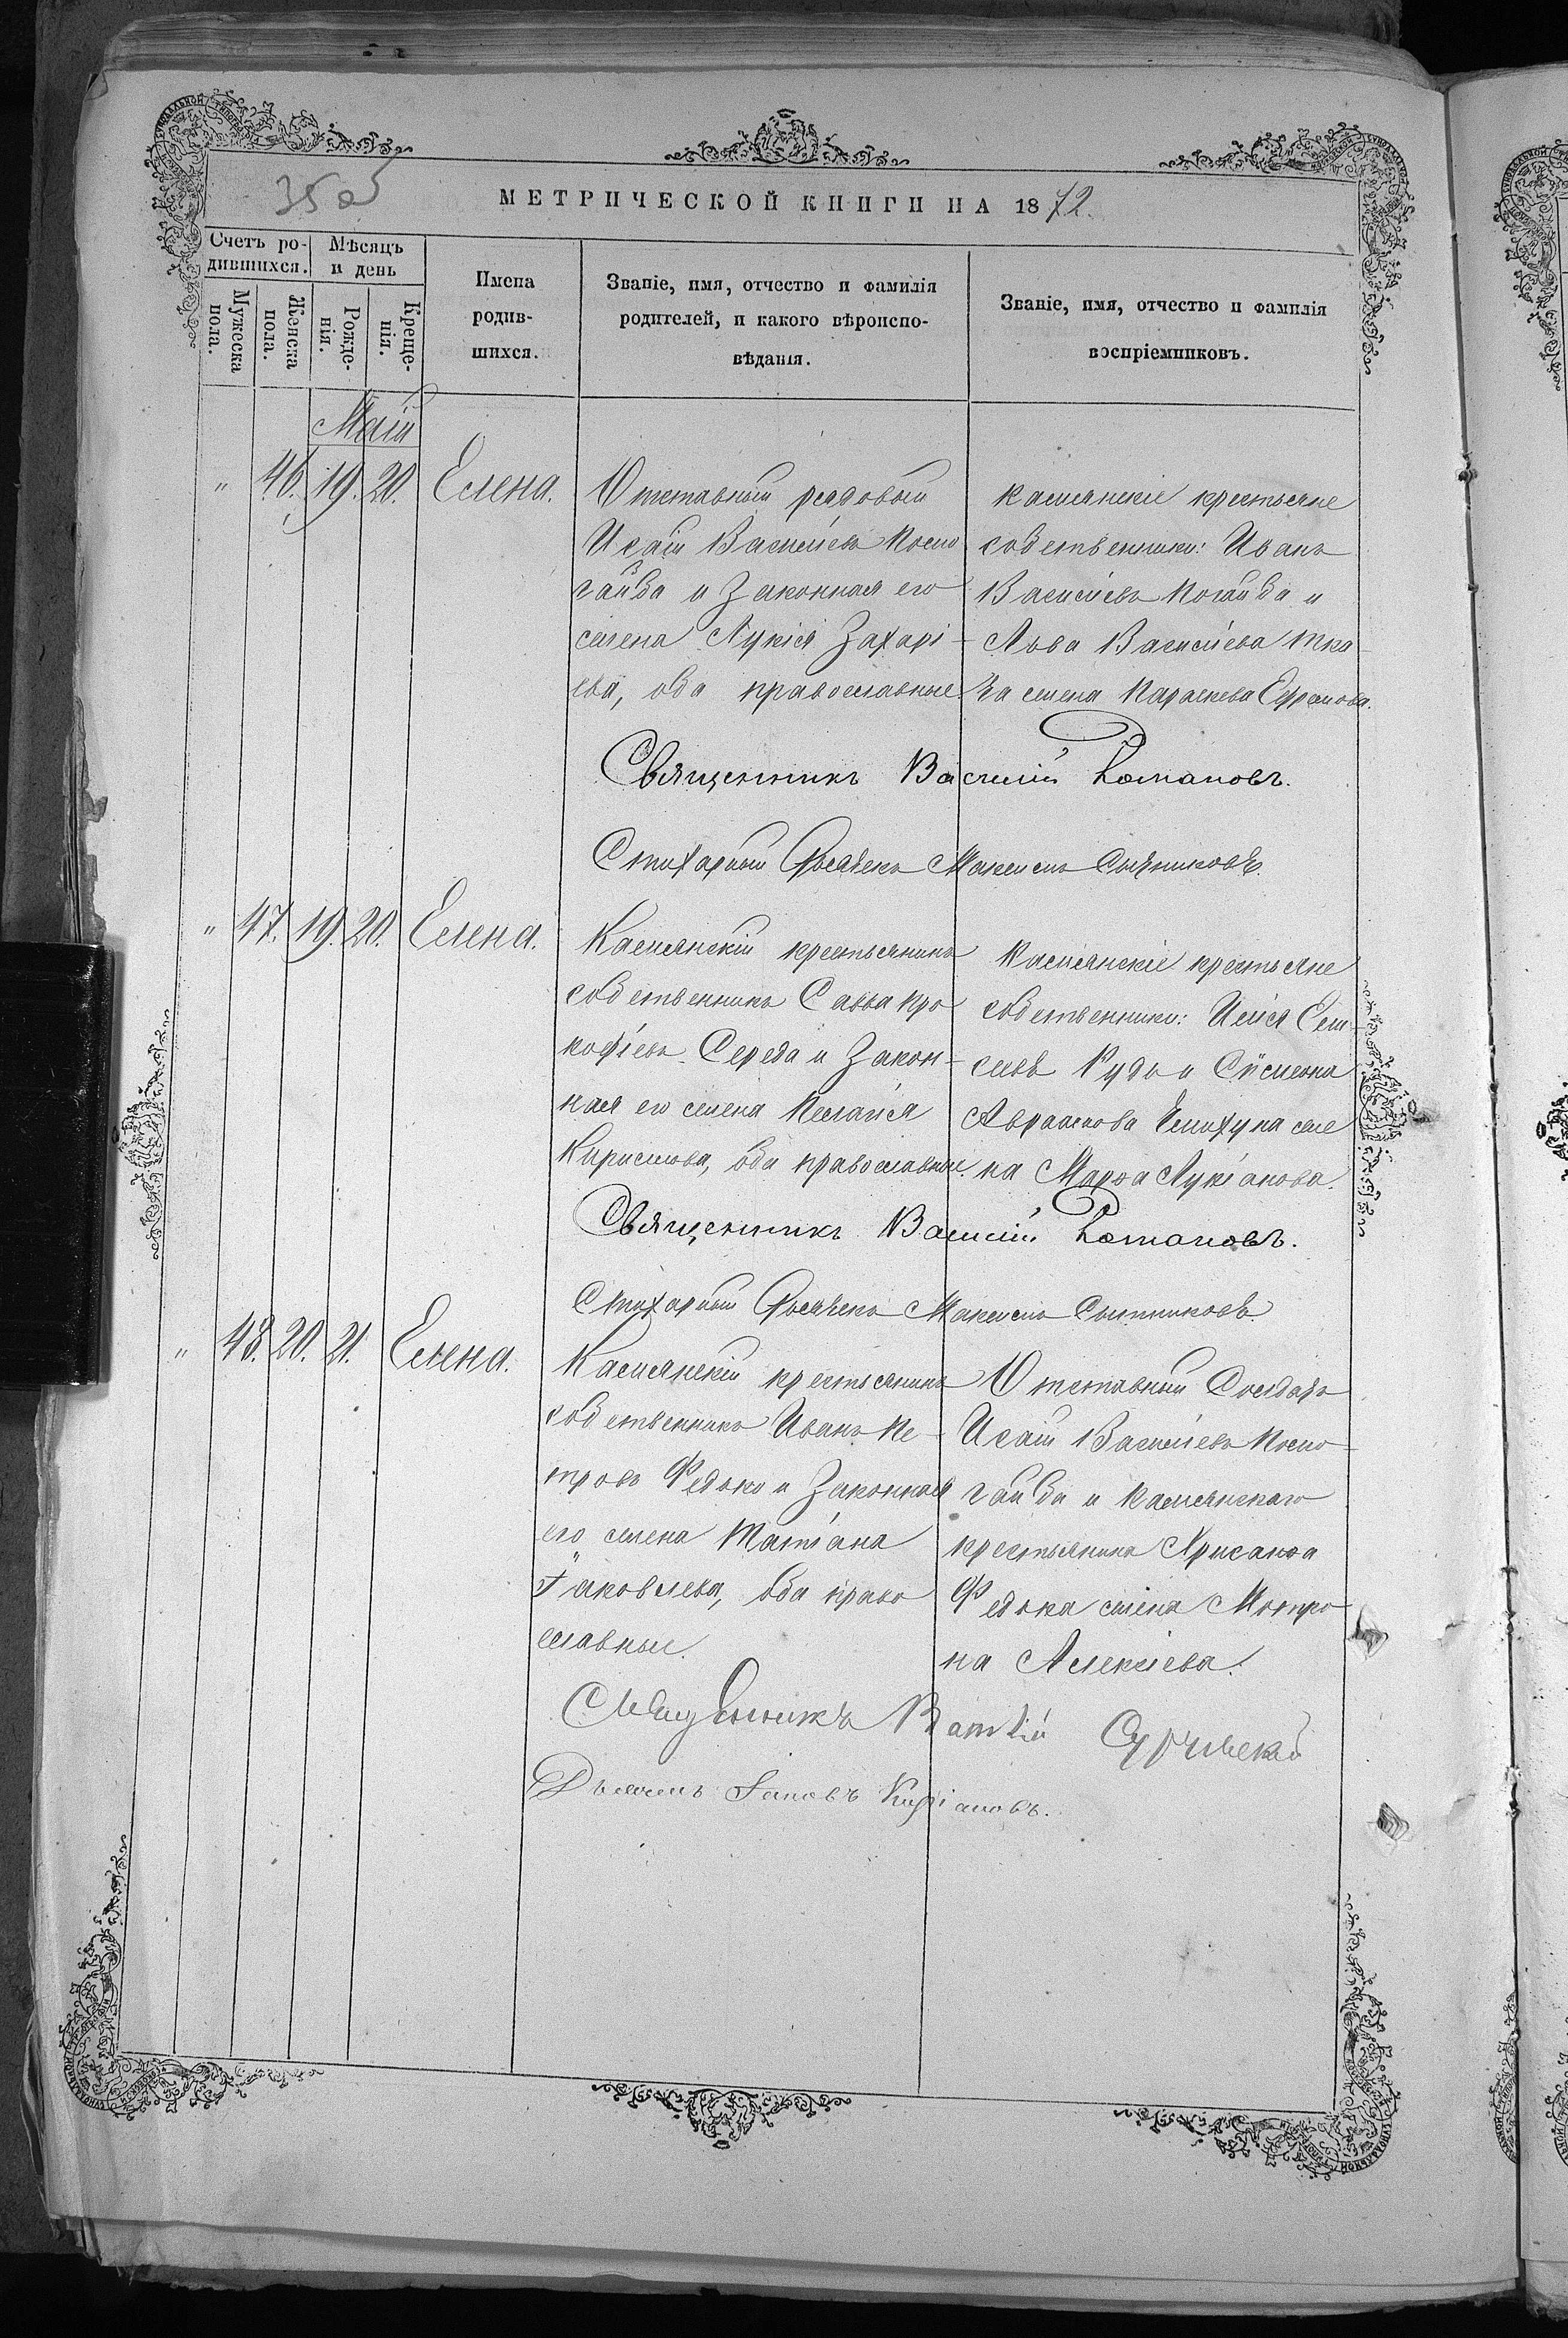 МЕТРИЧЕСКОЙ КНИГИ НА 1872.
Счетъ родившихся.
Мужеска пола.
Женска пола.
Мѣсяцъ и день
Рожденія.
Крещенія.
Имена родившихся.
Званіе, имя, отчество и фамилія родителей, и какого вѣроисповѣданія.
Званіе, имя, отчество и фамилія воспріемниковъ.
Май
" 46. 19. 20. Елена.
Отставный рядовый
Исаій Васильевъ
гайда и законная его
жена Лукія Захарі-
ева, оба православные.
Камянскіе крестьяне
собственники: Иванъ
Васильевъ Погайда и
Льва Васильева Тка-
ча жена Параскева Ефремова.
Священникъ Василій Романовъ.
Стихарный Дьячекъ Максимъ Сытниковъ.
" 47. 19. 20. Елена.
Камянскій крестьянинъ
собственникъ Савва Про
кофіевъ Середа и Закон-
ная его жена Пелагія
Кирилова, оба православные.
Камянскіе крестьяне
собственники: Илія
Рудь и Сѵмеона
Авраамова же
на Марѳа Лукіанова.
Священникъ Василій Романовъ.
Стихарный Дьячекъ Максимъ Сытниковъ.
" 48. 20. 21. Елена.
Камянскій крестьянинъ
собственникъ Иванъ Пе-
тровъ Федько и Законная
его жена Татіана
Іаковлева, оба право
славные.
Отставный Солдатъ
Исаій Васильевъ
гайда и Камянскаго
крестьянина Хрисанѳа
Федька жена Мотро-
на Алексіева.
Священникъ
Дьячекъ Іаковъ